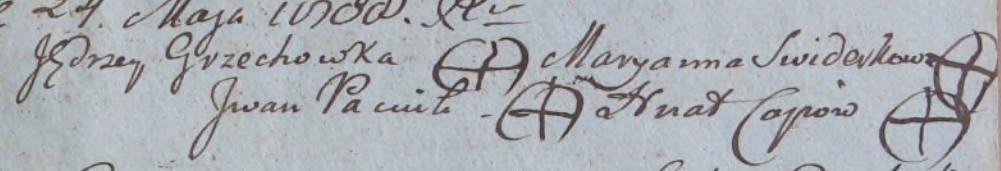 24. Maja 1788.
Jędrzey Grzechowka Maryanna Swiderkowa
Jwan Hnat Capiow